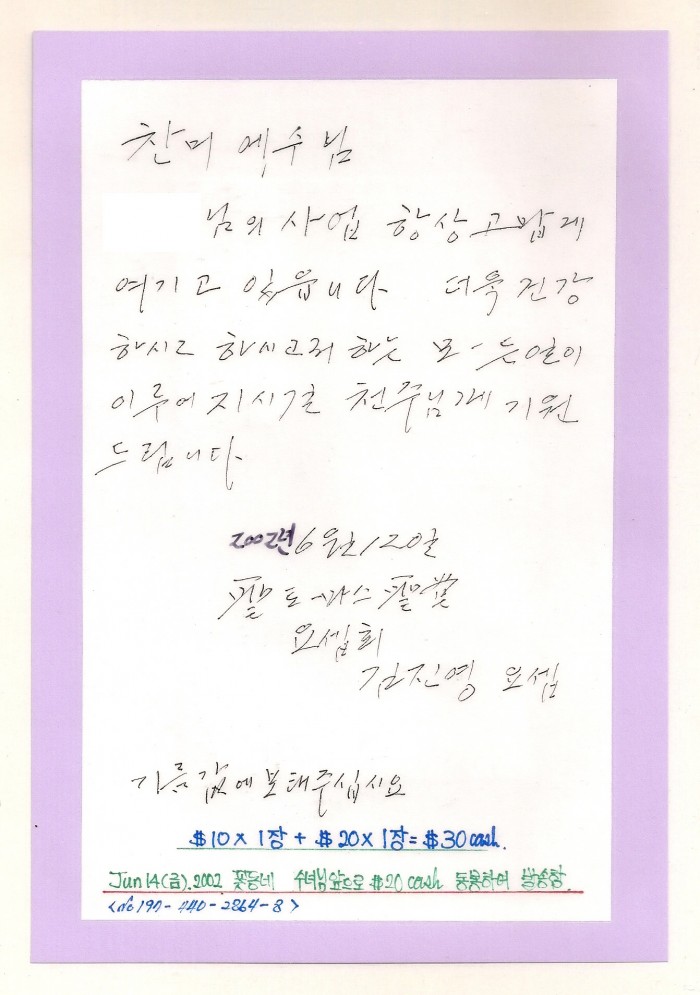 찬미 예수님
님의 사업 항상 고맙게
여기고 있읍니다 더욱 건강
하시고 하시고저 하는 모-든 일이
이루어 지시길 천주님께 기원
드립니다
2002년 6월 12일
聖 토마스 聖堂
요셉회
김진영 요셉
기름값에 보태주십시요
$10 × 1장 + $20 × 1장 = $30 cash.
Jun 14(금). 2002 꽃동네 수녀님앞으로 $20 cash 동봉하여 발송함.